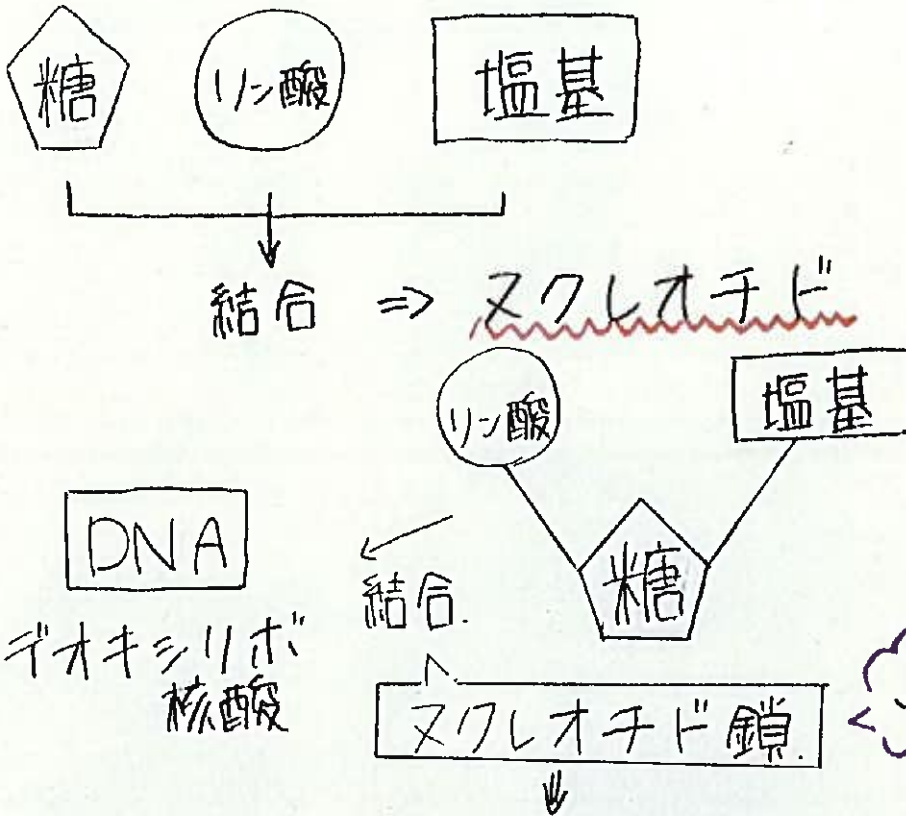 糖 リン酸 塩基
結合 ⇒ ヌクレオチド
リン酸 塩基
糖
DNA
結合.
デオキシリボ
核酸
ヌクレオチド鎖.